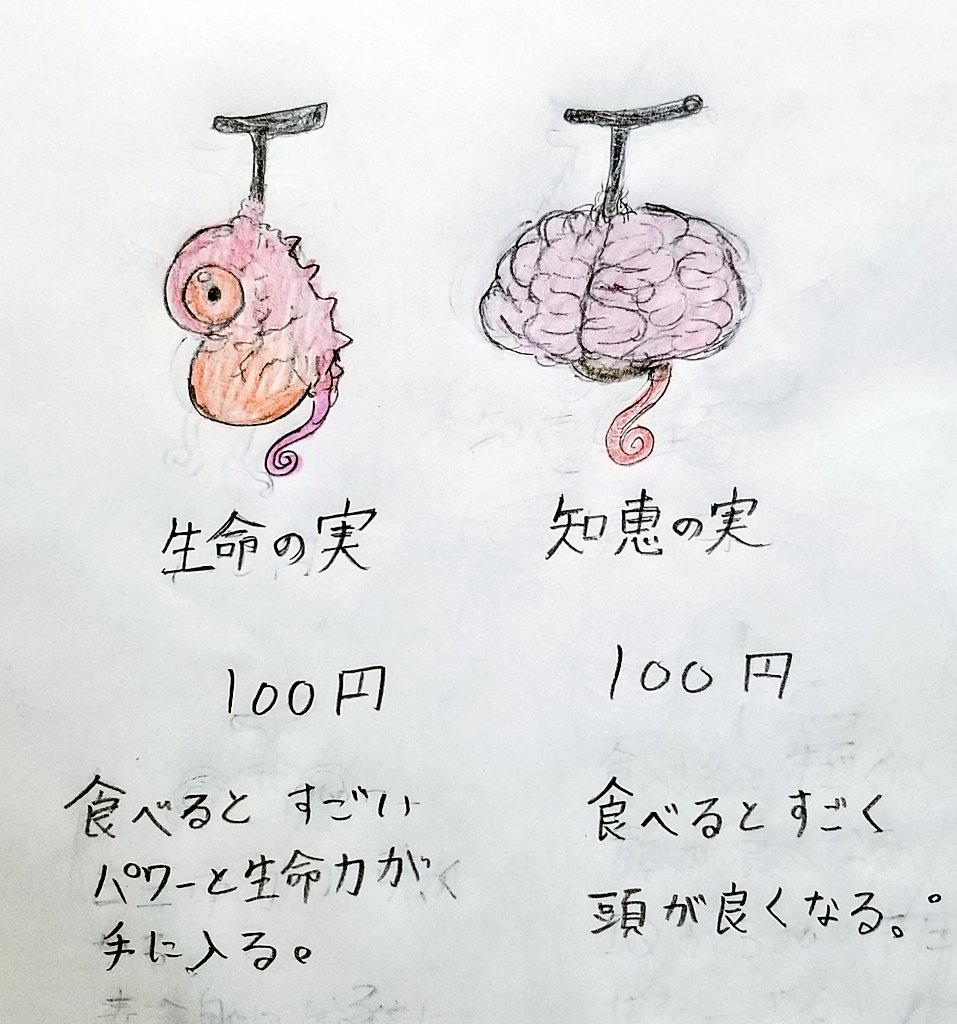 生命の実
100円
食べると すごい
パワーと生命力が
手に入る。
知恵の実
100円
食べるとすごく
頭が良くなる。